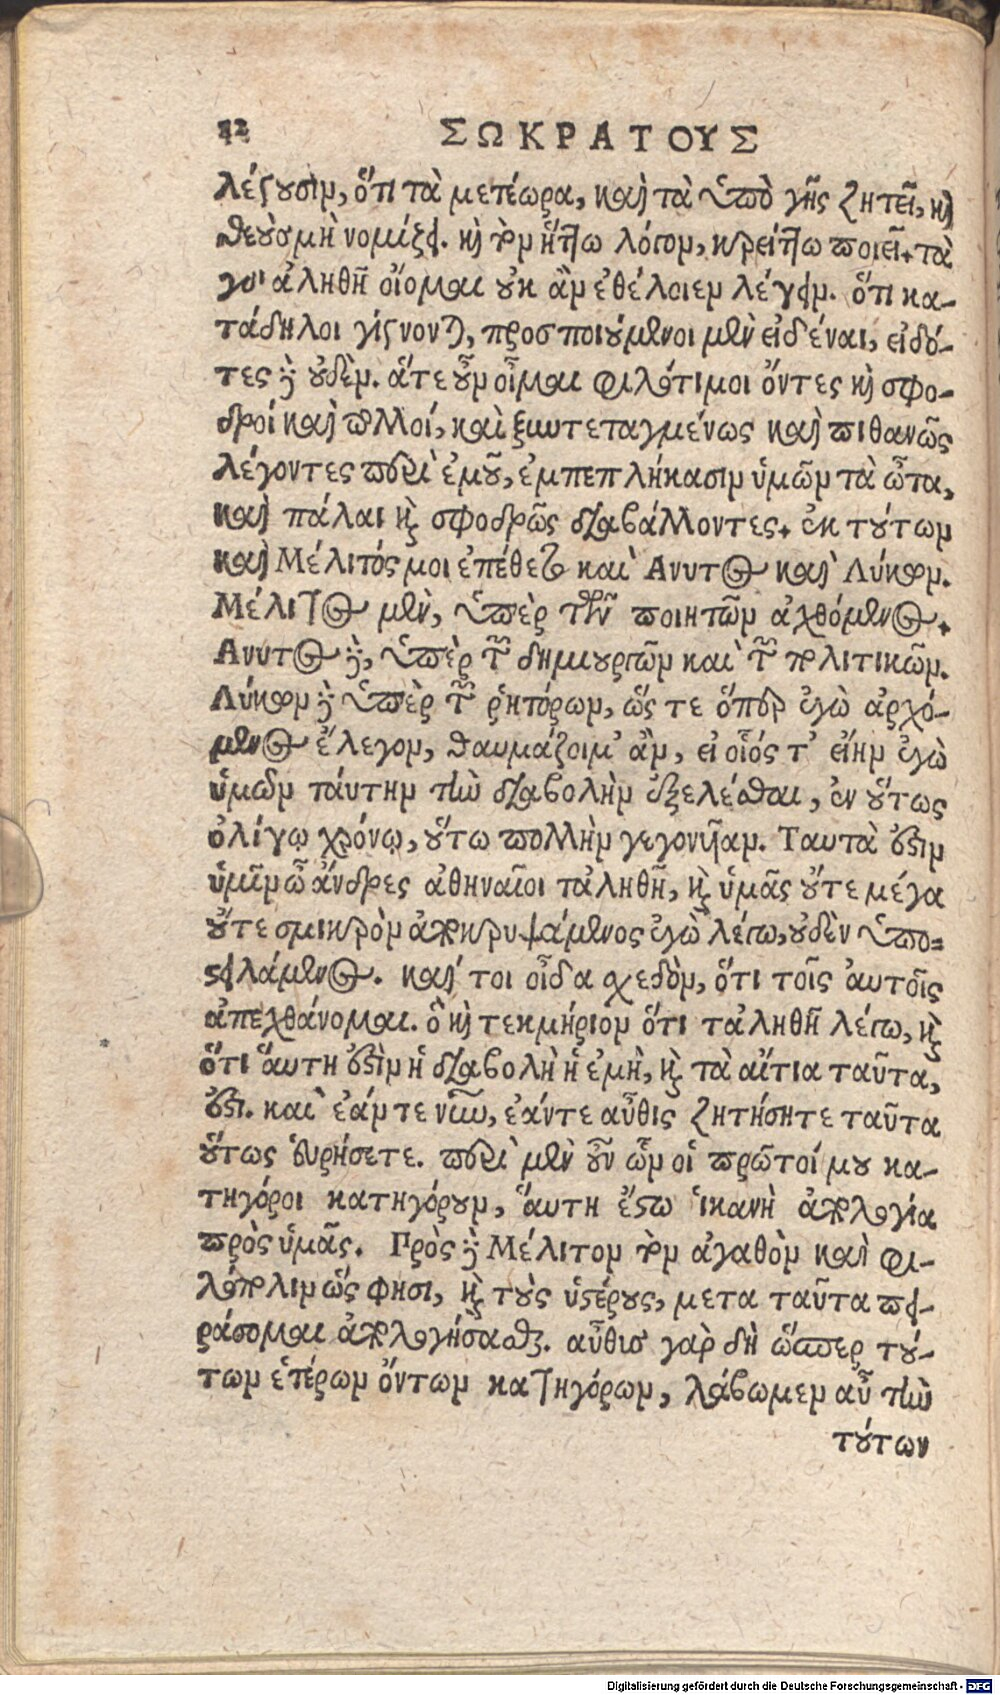 12 ΣΩΚΡΑΤΟΥΣ
λέγουσιν, ὅτι τὰ μετέωρα, καὶ τὰ ὑπὸ γῆς ζητεῖ, καὶ
θεοὺς μὴ νομίζει. καὶ τὸν ἥττω λόγον, κρείττω ποιεῖ. τὰ
γὰρ ἀληθῆ οἴομαι οὐκ ἂν ἐθέλοιεν λέγειν. ὅτι κα-
τάδηλοι γίγνονται, προσποιούμενοι μὲν εἰδέναι, εἰδό-
τες δὲ οὐδέν. ἅτε οὖν οἶμαι φιλότιμοι ὄντες καὶ σφο-
δροί καὶ πολλοί, καὶ ξυντεταγμένως καὶ πιθανῶς
λέγοντες περὶ ἐμοῦ, ἐμπεπλήκασιν ὑμῶν τὰ ὦτα,
καὶ πάλαι καὶ σφοδρῶς διαβάλλοντες. ἐκ τούτων
καὶ Μέλιτός μοι ἐπέθετο καὶ Ανυτος καὶ Λύκων.
Μέλιτος μὲν, ὑπὲρ τῶν ποιητῶν ἀχθόμενος.
Ανυτος δὲ, ὑπὲρ τῶν δημιουργῶν καὶ τῶν πολιτικῶν.
Λύκων δὲ ὑπὲρ τῶν ῥητόρων, ὥς τε ὅπερ ἐγὼ ἀρχό-
μενος ἔλεγον, θαυμάζοιμ' ἂν, εἰ οἷός τ' εἴην ἐγὼ
ὑμῶν ταύτην τὴν διαβολὴν ἐξελέσθαι, ἐν οὕτως
ὀλίγῳ χρόνῳ, οὕτω πολλὴν γεγονῆαν. Ταυτὰ ἐστιν
ὑμῖν ὦ ἄνδρες ἀθηναῖοι τἀληθῆ, καὶ ὑμᾶς οὔτε μέγα
οὔτε σμικρὸν ἀποκρυψάμενος ἐγὼ λέγω, οὐδὲν ὑπο-
στειλάμενος. καί τοι οἶδα σχεδὸν, ὅτι τοῖς αὐτοῖς
ἀπεχθάνομαι. ὃ καὶ τεκμήριον ὅτι τἀληθῆ λέγω, καὶ
ὅτι αὕτη ἐστὶν ἡ διαβολὴ ἡ ἐμὴ, καὶ τὰ αἴτια ταῦτα,
ἐστι. καὶ ἐάν τε νῦν, ἐάντε αὖθις ζητήσητε ταῦτα
οὕτως εὑρήσετε. περὶ μὲν οὖν ὧν οἱ πρῶτοί μου κα-
τηγόροι κατηγόρουν, αὕτη ἔστω ἱκανὴ ἀπολογία
πρὸς ὑμᾶς. Πρὸς δὲ Μέλιτον τὸν ἀγαθὸν καὶ φι-
λόπολιν ὥς φησι, καὶ τοὺς ὑστέρους, μετα ταῦτα πει-
ράσομαι ἀπολογήσασθαι. αὖθισ γὰρ δὴ ὥσπερ τού-
των ἑτέρων ὄντων κατηγόρων, λάβωμεν αὖ τὴν
τούτων
Digitalisierung gefördert durch die Deutsche Forschungsgemeinschaft - DFG